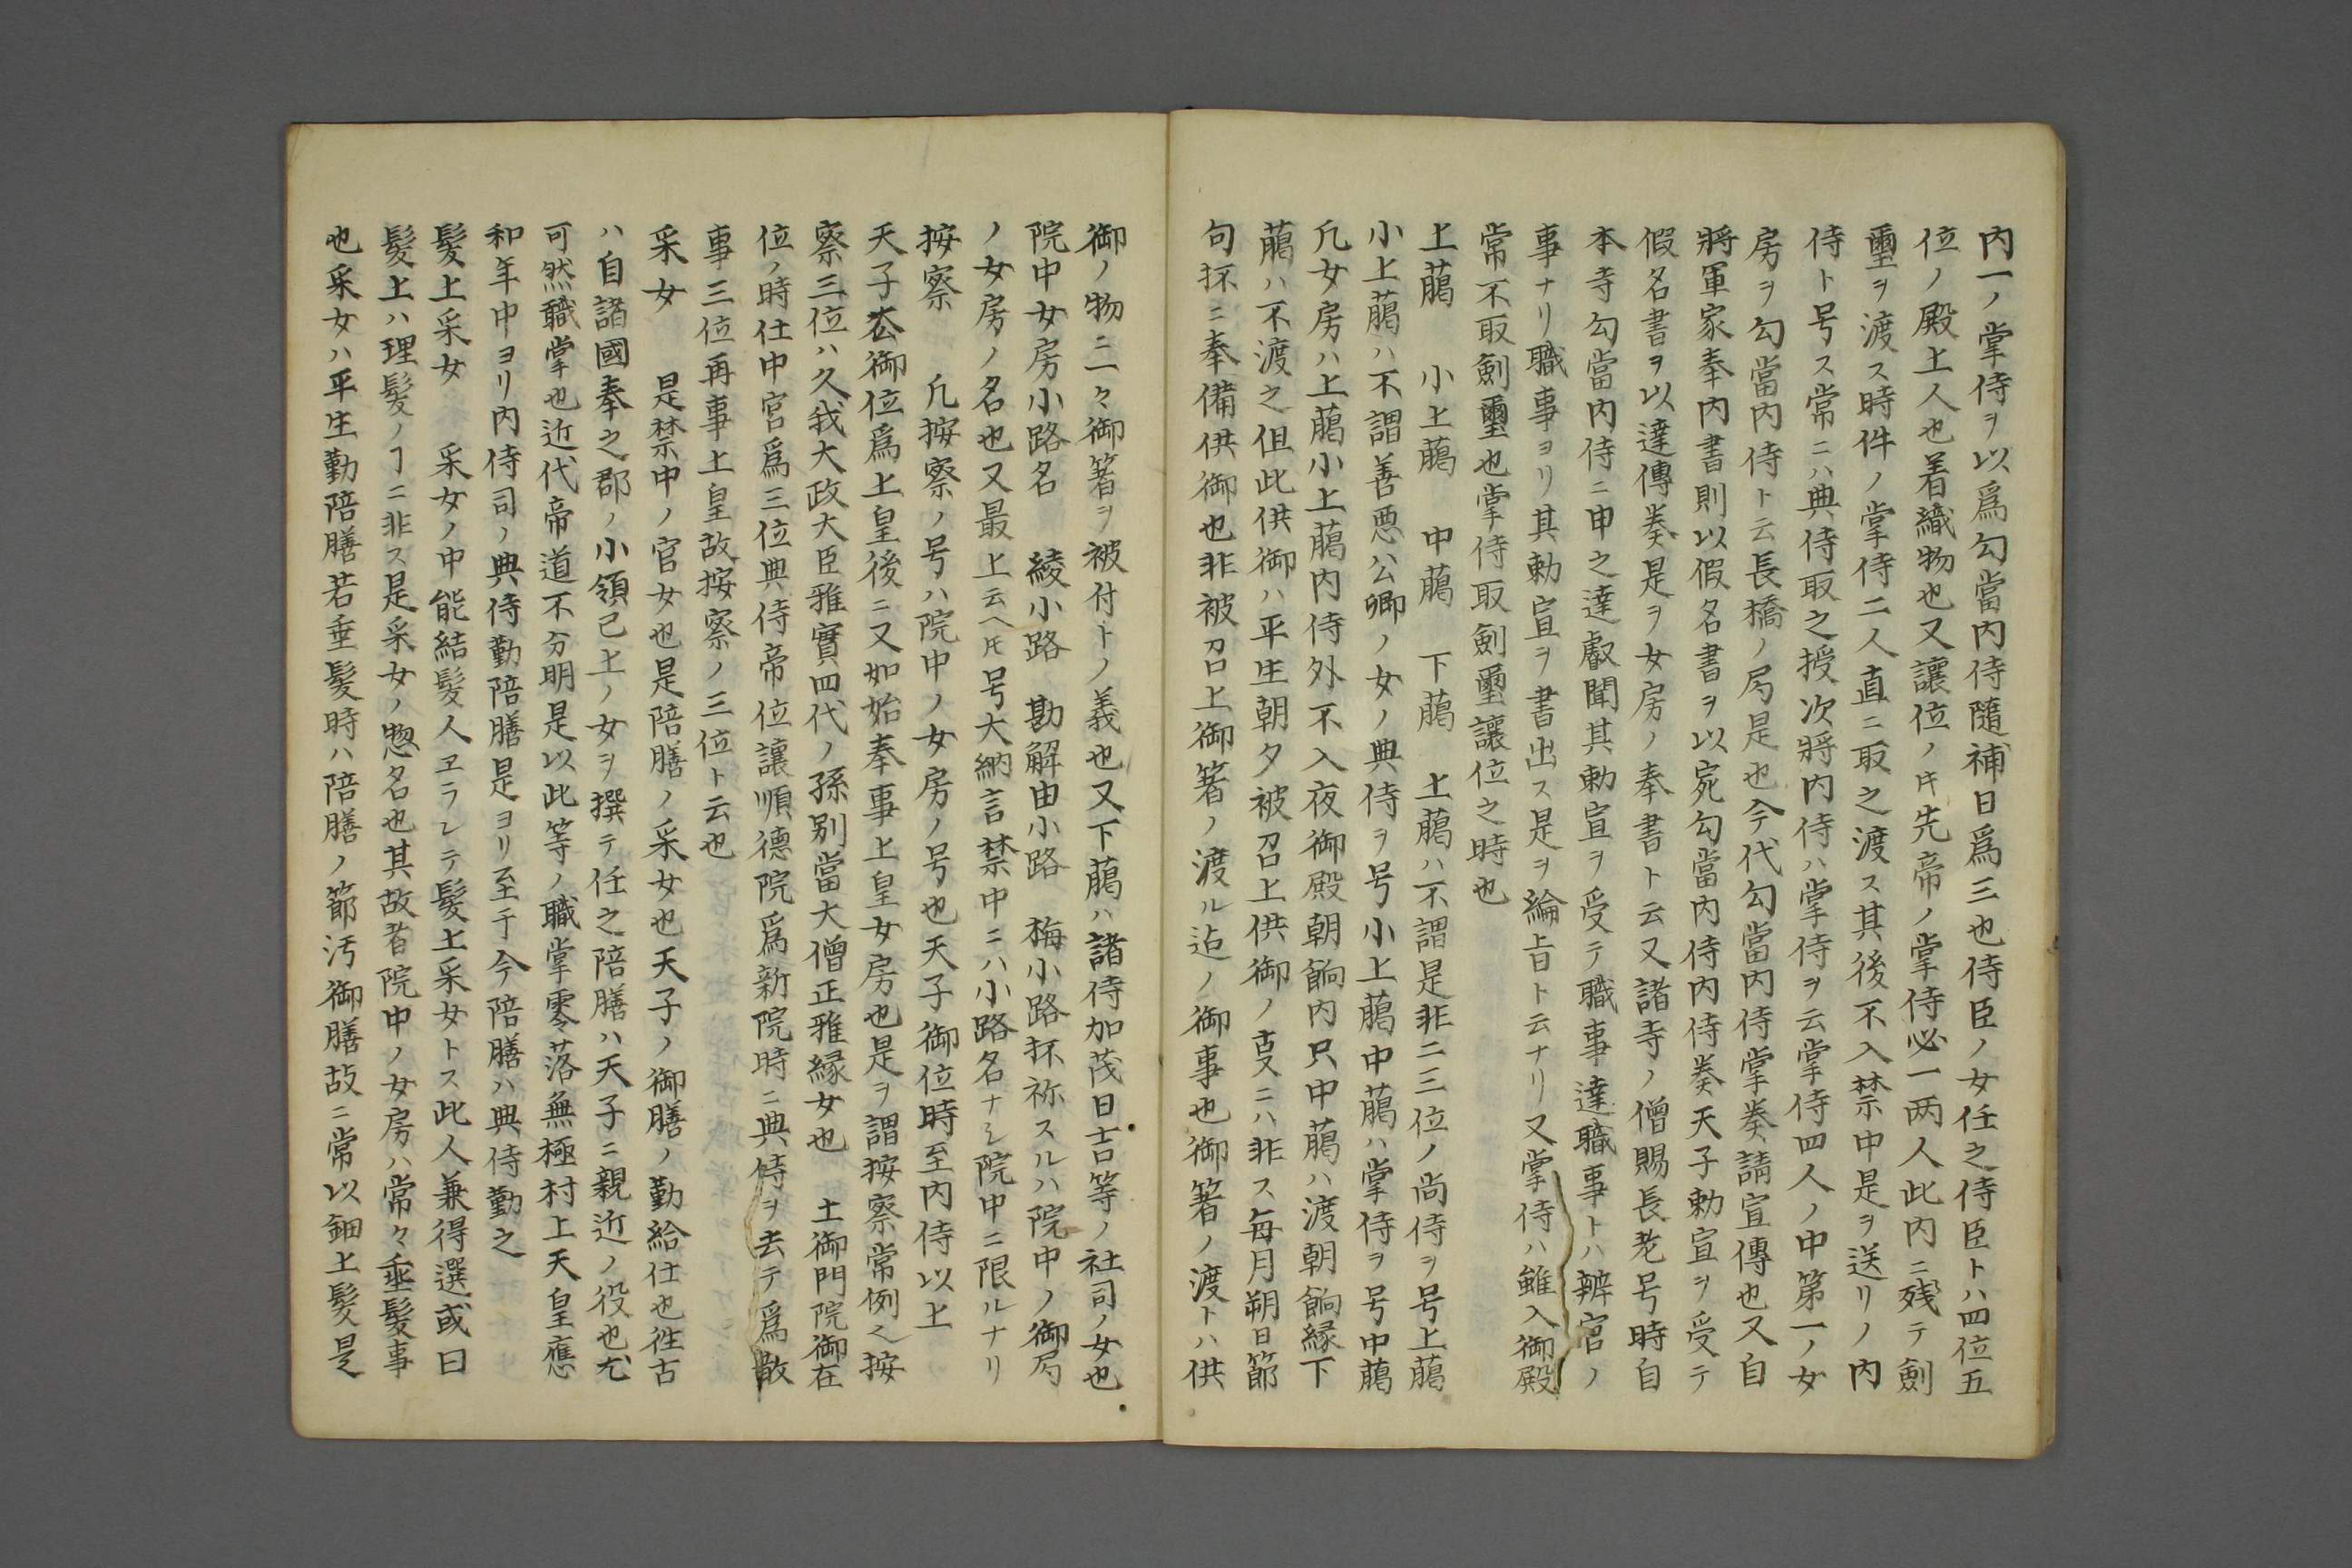 内一ノ掌侍ヲ以爲勾當内侍隨補日爲三也侍臣ノ女任之侍臣トハ四位五
位ノ殿上人也着織物也又讓位ノ𪜈先帝ノ掌侍必一両人此内ニ残テ劍
璽ヲ渡ス時件ノ掌侍二人直ニ取之渡ス其後不入禁中是ヲ送リノ内
侍ト号ス常ニハ典侍取之授次將内侍ハ掌侍ヲ云掌侍四人ノ中第一ノ女
房ヲ勾當内侍ト云長橋ノ局是也今代勾當内侍掌奏請宣傳也又自
將軍家奉内書則以假名書ヲ以宛勾當内侍内侍奏天子勅宣ヲ受テ
假名書ヲ以達傳奏是ヲ女房ノ奉書ト云又諸寺ノ僧賜長老号時自
本寺勾當内侍ニ申之達叡聞其勅宣ヲ受テ職事達職事トハ辨官ノ
事ナリ職事ヨリ其勅宣ヲ書出ス是ヲ綸旨ト云ナリ又掌侍ハ雖入御殿
常不取劍璽也掌侍取劍璽讓位之時也
上﨟　小上﨟　中﨟　下﨟　上﨟ハ不謂是非二三位ノ尚侍ヲ号上﨟
小上﨟ハ不謂善悪公卿ノ女ノ典侍ヲ号小上﨟中﨟ハ掌侍ヲ号中﨟
凢女房ハ上﨟小上﨟内侍外不入夜御殿朝餉内只中﨟ハ渡朝餉縁下
﨟ハ不渡之但此供御ハ平生朝夕被召上供御ノ㕝ニハ非ス毎月朔日節
句抔ニ奉備供御也非被召上御箸ノ渡ル迠ノ御事也御箸ノ渡トハ供
御ノ物ニ一々御箸ヲ被付トノ義也又下﨟ハ諸侍加茂日吉等ノ社司ノ女也
院中女房小路名　綾小路　勘解由小路　梅小路抔祢スルハ院中ノ御局
ノ女房ノ名也又最上云ヘ𪜈号大納言禁中ニハ小路名ナシ院中ニ限ルナリ
按察　凢按察ノ号ハ院中ノ女房ノ号也天子御位時至内侍以上
天子玄御位爲上皇後ニ又如始奉事上皇女房也是ヲ謂按察常例之按
察三位ハ久我大政大臣雅實四代ノ孫別當大僧正雅縁女也　土御門院御在
位ノ時仕中宮爲三位典侍帝位讓順德院爲新院時ニ典侍ヲ去テ爲散
事三位再事上皇故按察ノ三位ト云也
采女　是禁中ノ官女也是陪膳ノ采女也天子ノ御膳ノ勤給仕也徃古
ハ自諸國奉之郡ノ小領已上ノ女ヲ撰テ任之陪膳ハ天子ニ親近ノ役也尤
可然職掌也近代帝道不分明是以此等ノ職掌零落無極村上天皇應
和年中ヨリ内侍司ノ典侍勤陪膳是ヨリ至于今陪膳ハ典侍勤之
髮上采女　采女ノ中能結髮人ヱラレテ髮上采女トス此人兼得選或曰
髮上ハ理髮ノヿニ非ス是采女ノ惣名也其故者院中ノ女房ハ常々垂髮事
也采女ハ平生勤陪膳若垂髮時ハ陪膳ノ節汚御膳故ニ常以釧上髮是